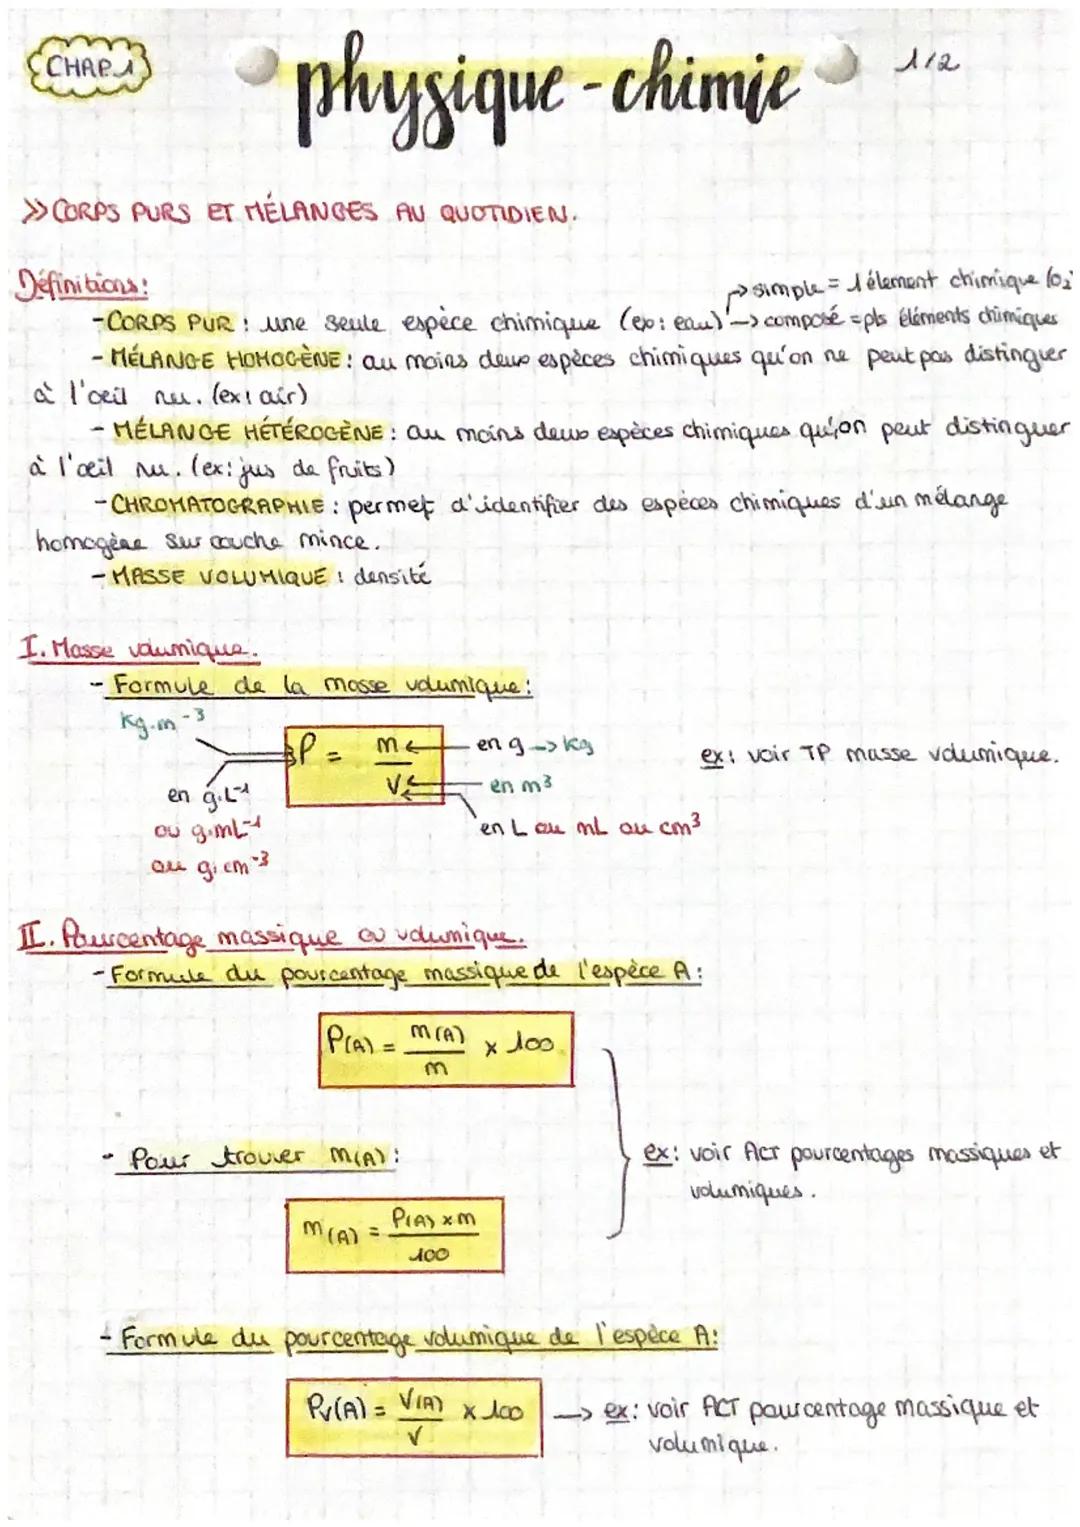 CHAP.1
physique-chimie
1/2
>> CORPS PURS ET MÉLANGES AU QUOTIDIEN.
Définitions:
-> simple = 1 élement chimique (O2)
- CORPS PUR : une seule espèce chimique (ex: eau) -> composé = pls éléments chimiques
- MÉLANGE HOMOGÈNE : au moins deux espèces chimiques qu'on ne peut pas distinguer
à l'oeil nu. (ex: air)
- MÉLANGE HÉTÉROGÈNE : au moins deux espèces chimiques qu'on peut distinguer
à l'œil nu. (ex: jus de fruits)
- CHROMATOGRAPHIE : permet d'identifier des espèces chimiques d'un mélange
homogène sur couche mince.
- MASSE VOLUMIQUE : densité
I. Masse volumique.
- Formule de la masse volumique:
kg.m-3
ρ = m / V
en g -> kg
en m3
en L ou mL ou cm3
en g.L-1
ou g.mL-1
ou g.cm-3
ex: voir TP masse volumique.
II. Pourcentage massique ou volumique.
- Formule du pourcentage massique de l'espèce A:
P(A) = m(A) / m x 100
- Pour trouver m(A):
m(A) = P(A) x m / 100
ex: voir ACT pourcentages massiques et
volumiques.
- Formule du pourcentage volumique de l'espèce A:
Pv(A) = V(A) / V x 100
-> ex: voir ACT pourcentage massique et
volumique.